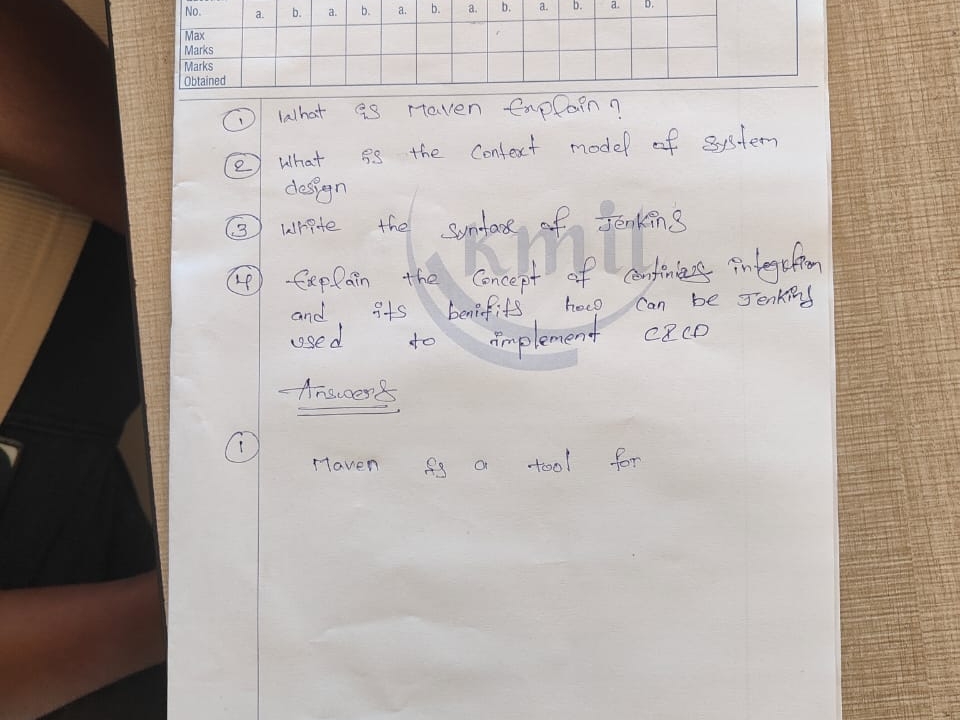 No. a. b. a. b. a. b. a. b. a. b. a. b.
Max
Marks
Marks
Obtained
1 What is Maven Explain?
2 What is the Context model of system
design
3 Write the syntax of Jenkins
kmit
4 Explain the Concept of Continious integration
and its benifits how can be Jenkins
used to implement CICD
Answers
1
Maven is a tool for